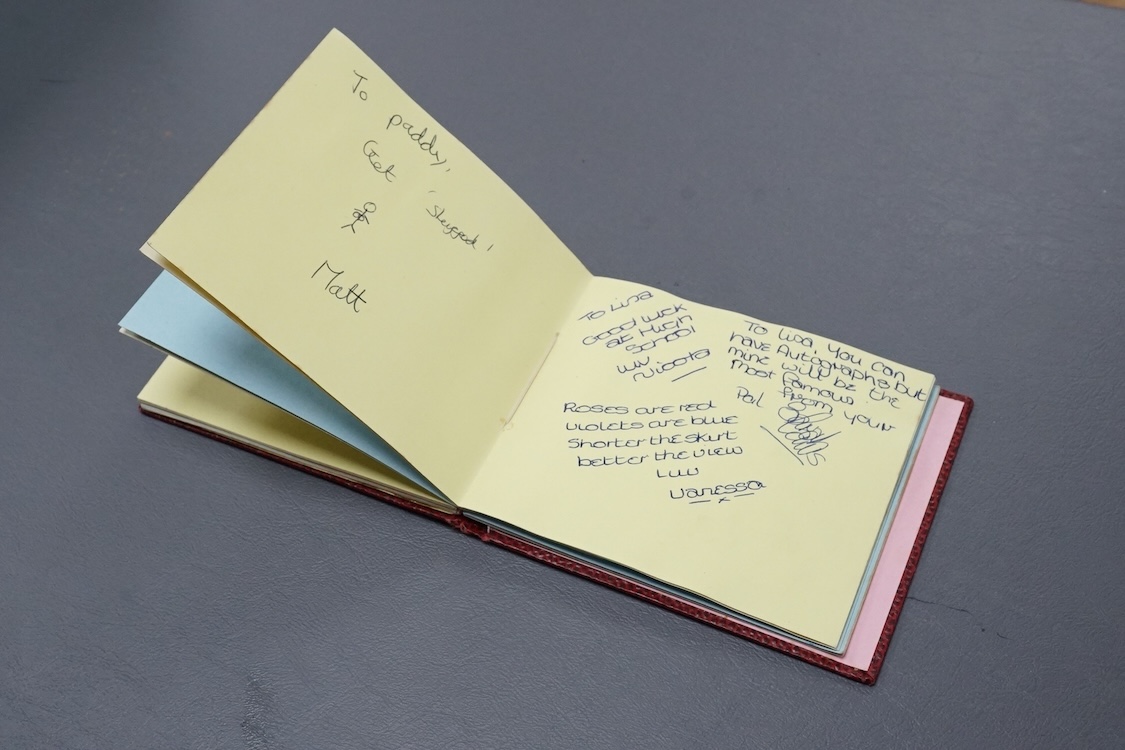 To
paddy,
Get
"Shagged"
Matt
To Lisa
Good luck
at High
School
luv
Nicola
To Lisa, You can
have Autographs but
mine will be the
Most famous
from your
Pal
Roses are red
violets are blue
Shorter the skirt
better the view
Luv
Vanessa
x